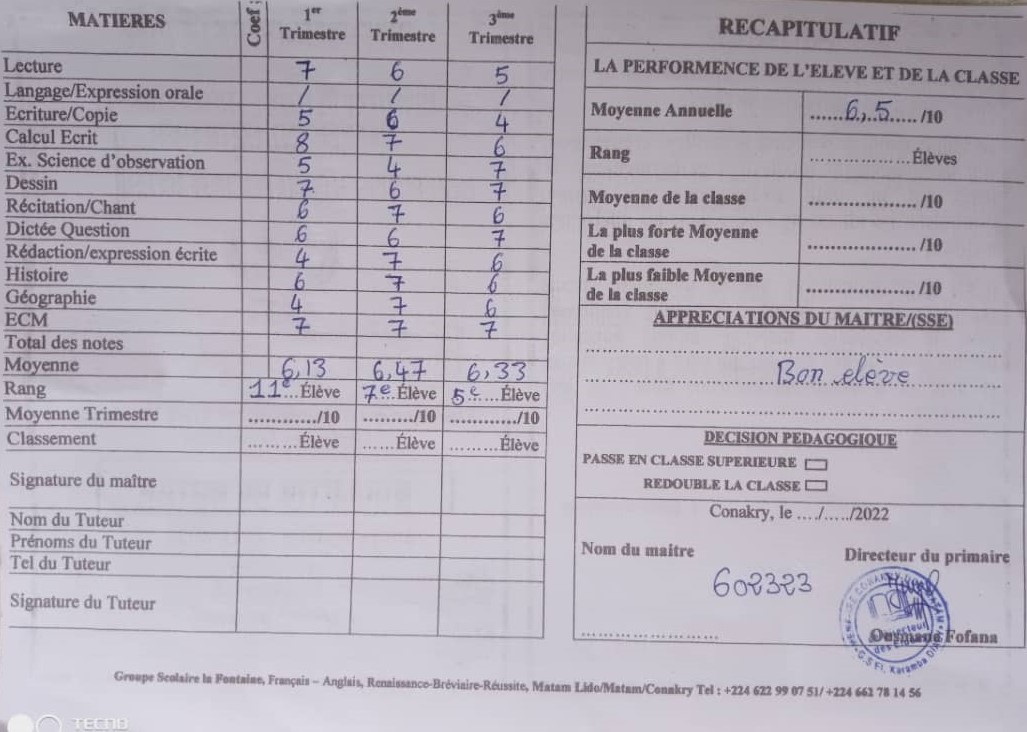 MATIERES Coef: 1er Trimestre 2ème Trimestre 3ème Trimestre
Lecture 7 6 5
Langage/Expression orale / / /
Ecriture/Copie 5 6 4
Calcul Ecrit 8 7 6
Ex. Science d'observation 5 4 7
Dessin 7 6 7
Récitation/Chant 6 7 6
Dictée Question 6 6 7
Rédaction/expression écrite 4 7 6
Histoire 6 7 6
Géographie 4 7 6
ECM 7 7 7
Total des notes
Moyenne 6,13 6,47 6,33
Rang 11e...Élève 7e.Élève 5e....Élève
Moyenne Trimestre ............/10 ........./10 ............/10
Classement ........Élève ......Élève .........Élève
Signature du maître
Nom du Tuteur
Prénoms du Tuteur
Tel du Tuteur
Signature du Tuteur
RECAPITULATIF
LA PERFORMENCE DE L'ELEVE ET DE LA CLASSE
Moyenne Annuelle ......6,.5...../10
Rang ..................Élèves
Moyenne de la classe ...................../10
La plus forte Moyenne
de la classe ...................../10
La plus faible Moyenne
de la classe ...................../10
APPRECIATIONS DU MAITRE/(SSE)
Bon élève
DECISION PEDAGOGIQUE
PASSE EN CLASSE SUPERIEURE
REDOUBLE LA CLASSE
Conakry, le ..../...../2022
Nom du maitre Directeur du primaire
602323
Ousmane Fofana
Groupe Scolaire la Fontaine, Français – Anglais, Renaissance-Bréviaire-Réussite, Matam Lido/Matam/Conakry Tel : +224 622 99 07 51/ +224 662 78 14 56
TECNO